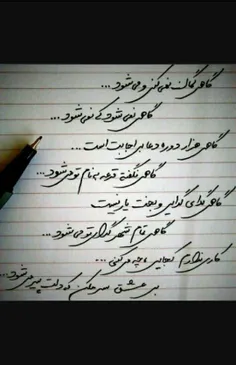 گاهی گمان نمی کنی و می شود ...
گاهی نمی شود که نمی شود ...
گاهی هزار دوره دعا بی اجابت است ...
گاهی نگفته قرعه به نام تو می شود ...
گاهی گدای گدایی و بخت یار نیست
گاهی تمام شهر گدای تو می شود ...
کاری ندارم کجایی چه می کنی ...
بی عشق سر مکن که دلت پیر می شود ...